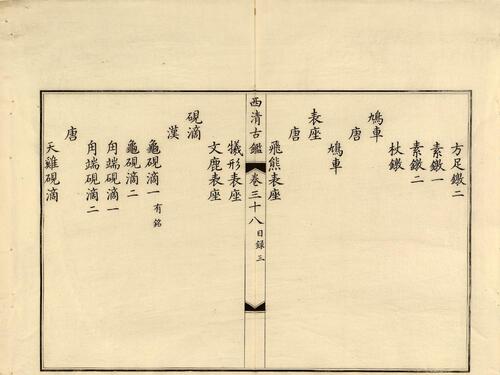 方足鐓二
素鐓一
素鐓二
杖鐓
鳩車
唐
鳩車
表座
唐
飛熊表座
西清古鑑 卷三十八 目錄 三
犧形表座
文鹿表座
硯滴
漢
龜硯滴一 有銘
龜硯滴二
甪端硯滴一
甪端硯滴二
唐
天雞硯滴